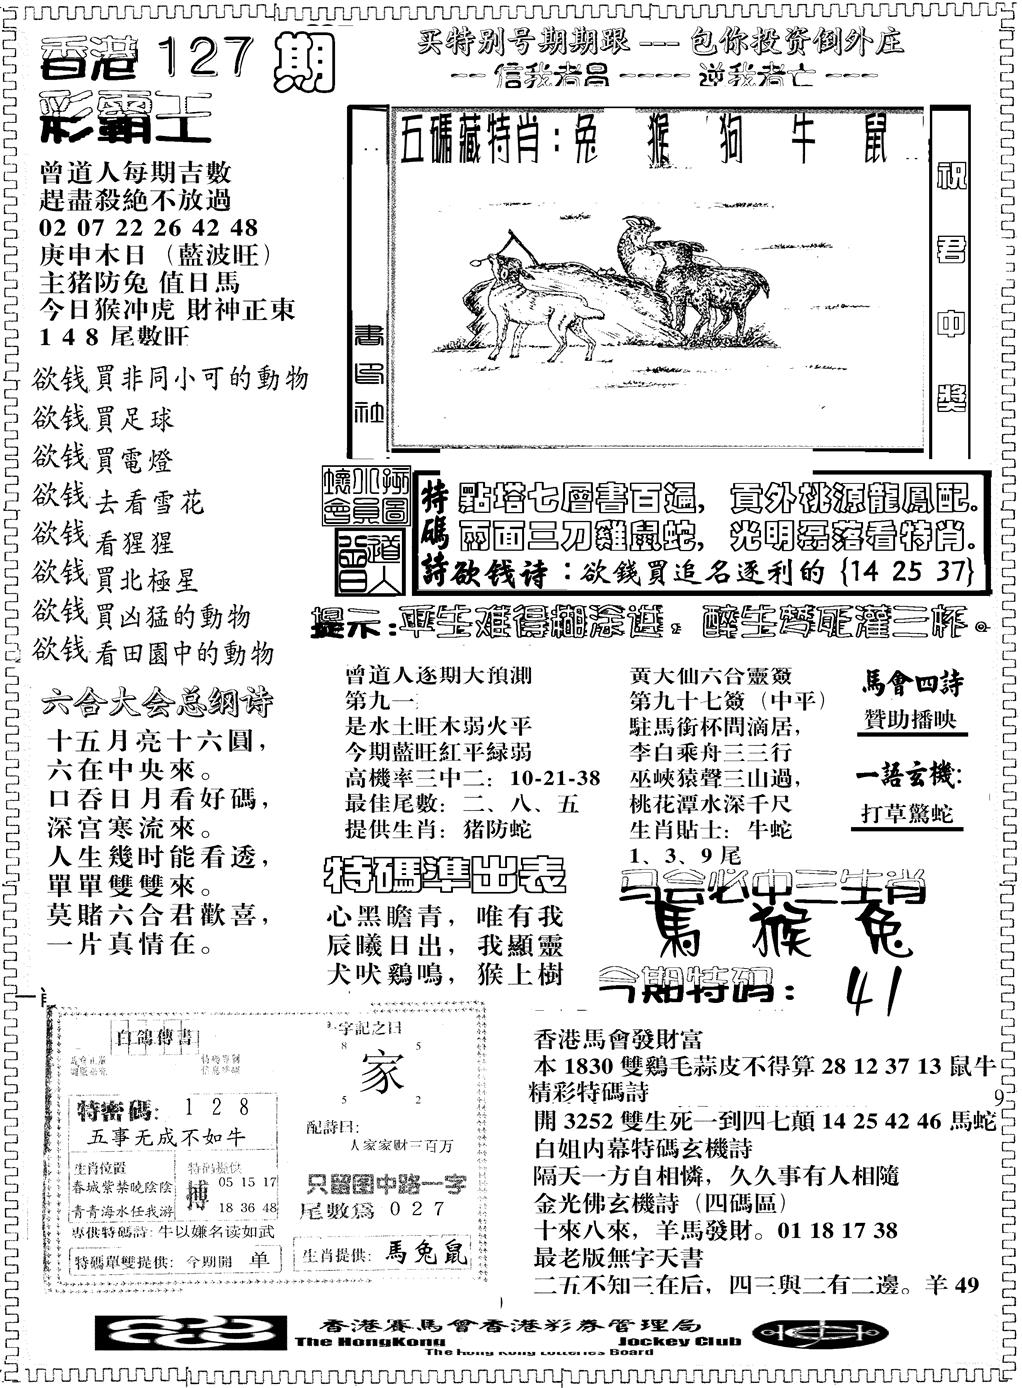 香港 127 期
彩霸王
买特别号期期跟 --- 包你投资倒外庄
-- 信我者昌 ---- 逆我者亡 ---
曾道人每期吉數
趕盡殺絕不放過
02 07 22 26 42 48
庚申木日（藍波旺）
主猪防兔 值日馬
今日猴冲虎 財神正東
1 4 8 尾數旺
五碼藏特肖：兔 猴 狗 牛 鼠
祝君中獎
欲钱買非同小可的動物
欲钱買足球
欲钱買電燈
欲钱去看雪花
欲钱看猩猩
欲钱買北極星
欲钱買凶猛的動物
欲钱看田園中的動物
曾道人
特碼詩
點塔七層書百遍，貢外桃源龍鳳配.
兩面三刀雞鼠蛇，光明磊落看特肖.
欲钱诗：欲錢買追名逐利的 {14 25 37}
提示:平生难得糊涂进。醉生梦死灌三杯。
六合大会总纲诗
十五月亮十六圓，
六在中央來。
口吞日月看好碼，
深宫寒流來。
人生幾时能看透，
單單雙雙來。
莫賭六合君歡喜，
一片真情在。
曾道人逐期大預測
第九一
是水土旺木弱火平
今期藍旺紅平緑弱
高機率三中二：10-21-38
最佳尾數：二、八、五
提供生肖：猪防蛇
黃大仙六合靈簽
第九十七簽（中平）
駐馬銜杯問滴居，
李白乘舟三三行
巫峽猿聲三山過，
桃花潭水深千尺
生肖貼士：牛蛇
1、3、9 尾
馬會四詩
贊助播映
一語玄機:
打草驚蛇
特碼準出表
心黑瞻青，唯有我
辰曦日出，我顯靈
犬吠鷄鳴，猴上樹
马会必中三生肖
馬 猴 兔
今期特码： 41
白鴿傳書
特密碼: 1 2 8
五事无成不如牛
生肖位置
春城紫禁晚陰陰
青青海水任我游
特碼提供
搏
05 15 17
18 36 48
專供特碼詩: 牛以嫌名读如武
特碼單雙提供: 今期開 单
一字記之曰
8 5
家
5 2
配詩曰:
人家家财三百万
只留图中路一字
尾數爲 0 2 7
生肖提供: 馬兔鼠
香港馬會發財富
本 1830 雙鷄毛蒜皮不得算 28 12 37 13 鼠牛
精彩特碼詩
9
開 3252 雙生死一到四七顛 14 25 42 46 馬蛇
白姐内幕特碼玄機詩
隔天一方自相憐，久久事有人相隨
金光佛玄機詩（四碼區）
十來八來，羊馬發財。01 18 17 38
最老版無字天書
二五不知三在后，四三與二有二邊。羊 49
香港賽馬會香港彩券管理局
The HongKong Jockey Club
The Hong Kong Lotteries Board